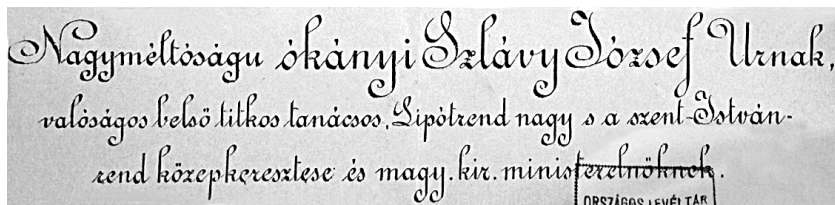 Nagyméltóságu ókányi Szlávy József Urnak,
valóságos belső titkos tanácsos, Lipótrend nagy s a szent-István-
rend középkeresztese és magy. kir. ministerelnöknek.
ORSZÁGOS LEVÉLTÁR